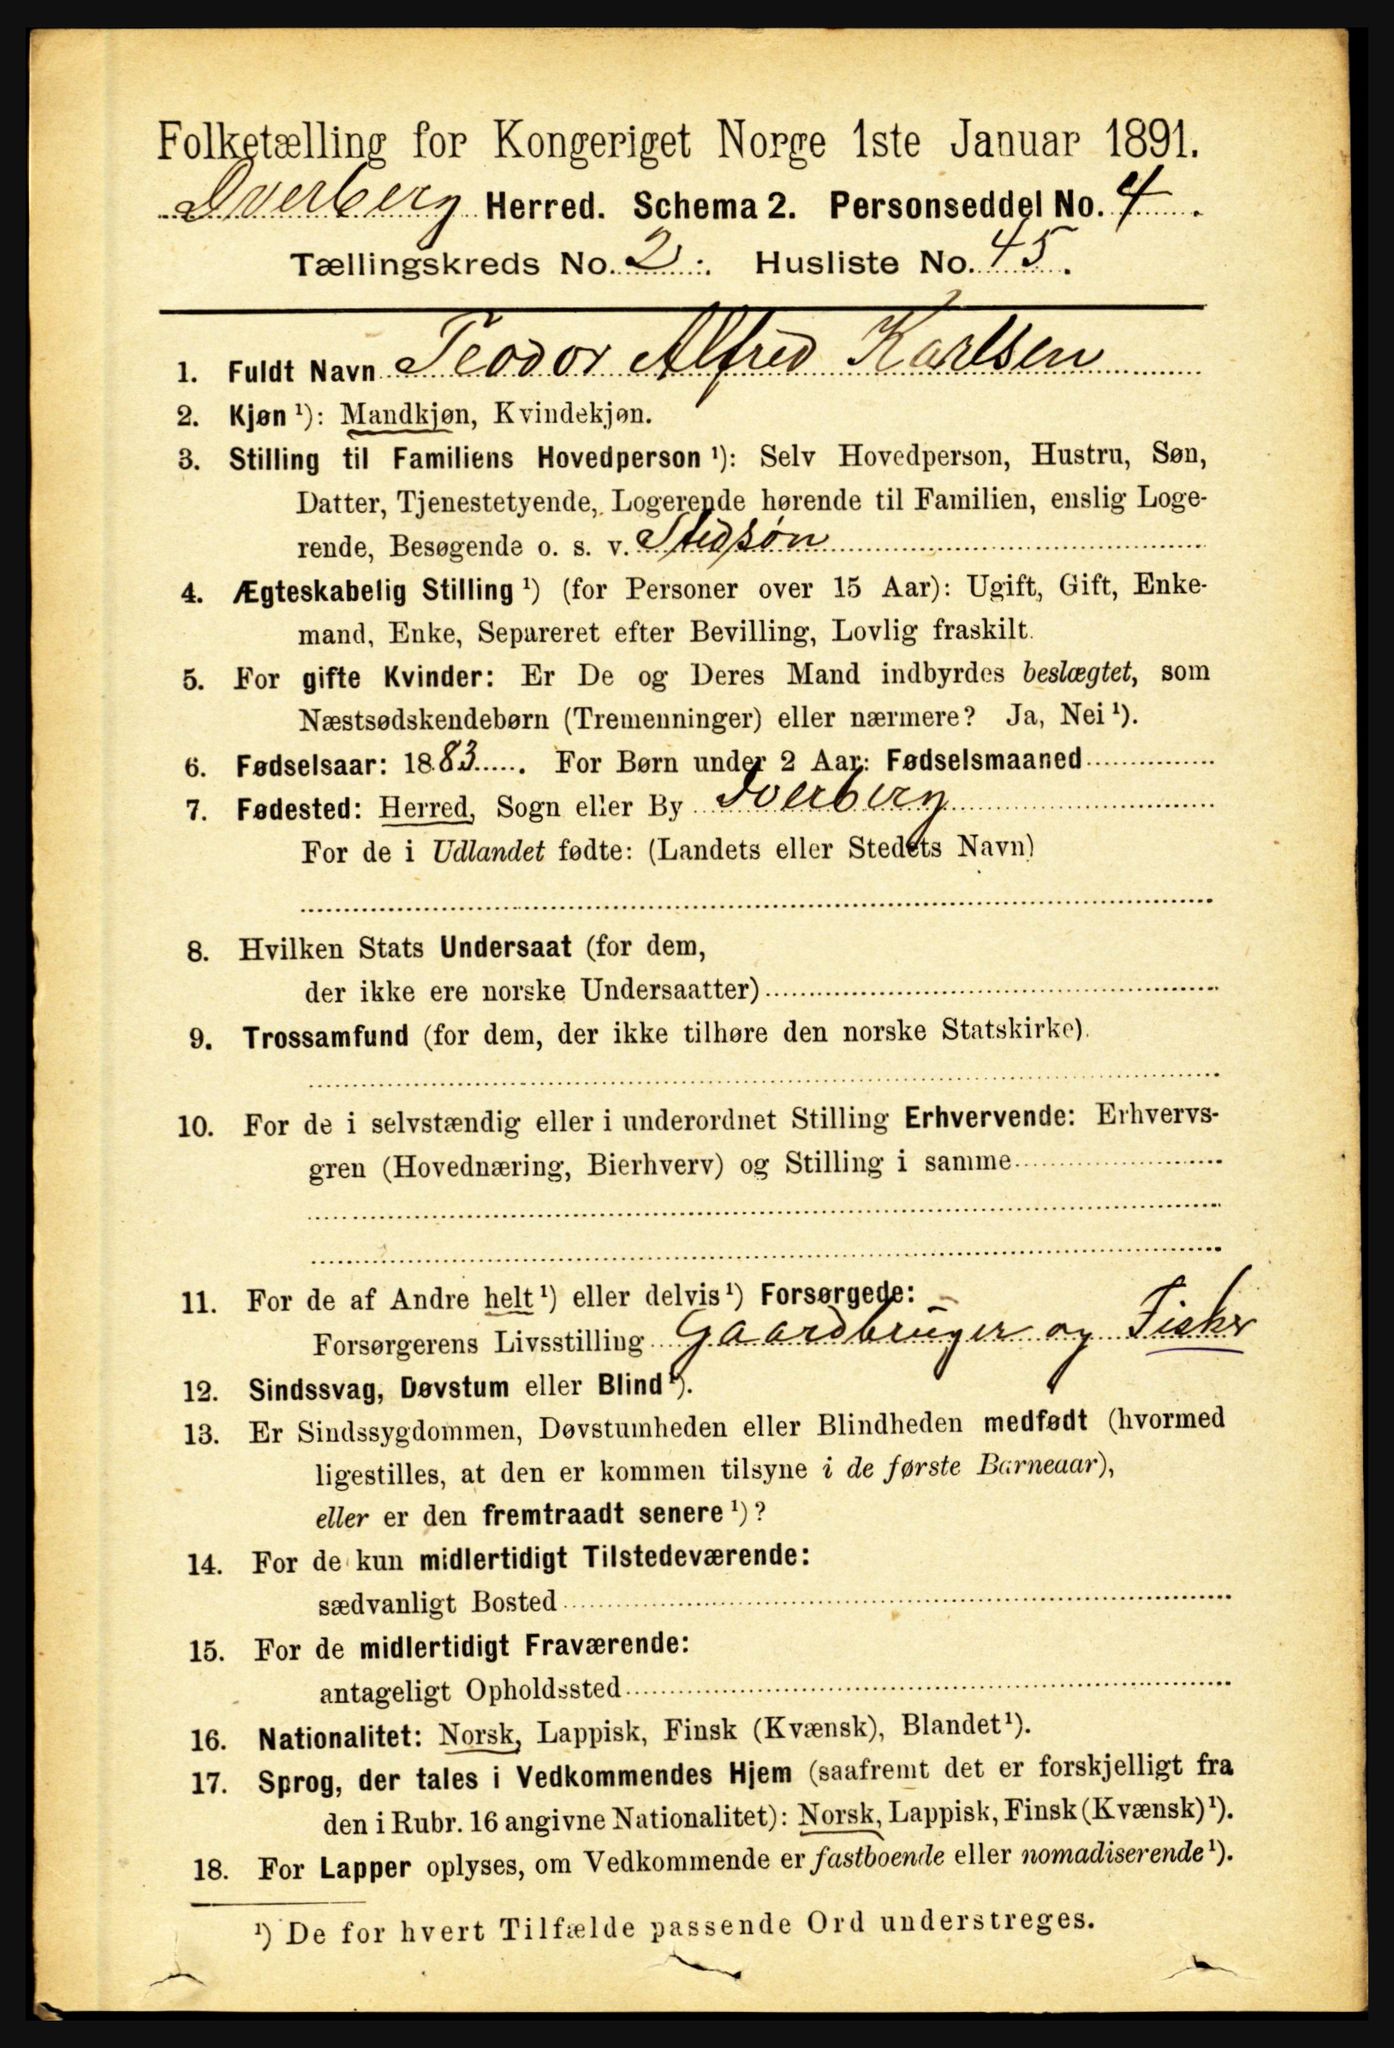 Folketælling for Kongeriget Norge 1ste Januar 1891.
Dverberg Herred. Schema 2. Personseddel No. 4.
Tællingskreds No. 2. Husliste No. 45.
1. Fuldt Navn Teodor Alfred Karlsen
2. Kjøn ¹): Mandkjøn, Kvindekjøn.
3. Stilling til Familiens Hovedperson ¹): Selv Hovedperson, Hustru, Søn,
Datter, Tjenestetyende, Logerende hørende til Familien, enslig Loge-
rende, Besøgende o. s. v. Stedsøn
4. Ægteskabelig Stilling ¹) (for Personer over 15 Aar): Ugift, Gift, Enke-
mand, Enke, Separeret efter Bevilling, Lovlig fraskilt.
5. For gifte Kvinder: Er De og Deres Mand indbyrdes beslægtet, som
Næstsødskendebørn (Tremenninger) eller nærmere? Ja, Nei ¹).
6. Fødselsaar: 1883. For Børn under 2 Aar: Fødselsmaaned
7. Fødested: Herred, Sogn eller By Dverberg
For de i Udlandet fødte: (Landets eller Stedets Navn)
8. Hvilken Stats Undersaat (for dem,
der ikke ere norske Undersaatter)
9. Trossamfund (for dem, der ikke tilhøre den norske Statskirke).
10. For de i selvstændig eller i underordnet Stilling Erhvervende: Erhvervs-
gren (Hovednæring, Bierhverv) og Stilling i samme
11. For de af Andre helt ¹) eller delvis ¹) Forsørgede:
Forsørgerens Livsstilling Gaardbruger og Fisker
12. Sindssvag, Døvstum eller Blind ¹).
13. Er Sindssygdommen, Døvstumheden eller Blindheden medfødt (hvormed
ligestilles, at den er kommen tilsyne i de første Barneaar),
eller er den fremtraadt senere ¹)?
14. For de kun midlertidigt Tilstedeværende:
sædvanligt Bosted
15. For de midlertidigt Fraværende:
antageligt Opholdssted
16. Nationalitet: Norsk, Lappisk, Finsk (Kvænsk), Blandet ¹).
17. Sprog, der tales i Vedkommendes Hjem (saafremt det er forskjelligt fra
den i Rubr. 16 angivne Nationalitet): Norsk, Lappisk, Finsk (Kvænsk) ¹).
18. For Lapper oplyses, om Vedkommende er fastboende eller nomadiserende ¹).
¹) De for hvert Tilfælde passende Ord understreges.